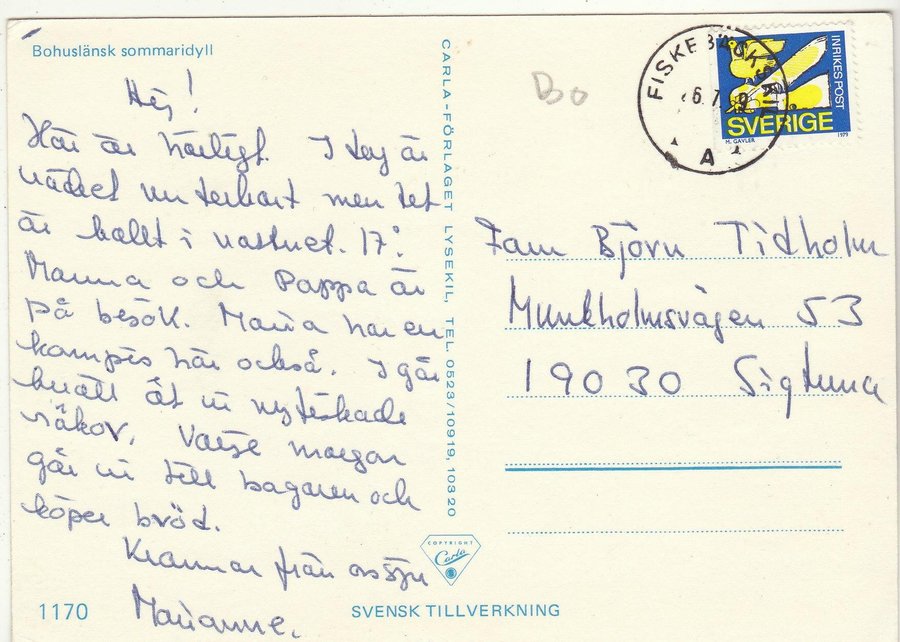 Bohuslänsk sommaridyll
Hej!
Här är härligt. I dag är
vädret underbart men det
är kallt i vattnet. 17°.
Mamma och Pappa är
på besök. Maria har en
kompis här också. I går
kväll åt vi nyfiskade
räkor. Varje morgon
går vi till bagaren och
köper bröd.
Kramar från oss
Marianne.
1170
SVENSK TILLVERKNING
CARLA-FÖRLAGET LYSEKIL, TEL. 0523/10919, 10320
COPYRIGHT
Carla
Bo
FISKEBÄCKSKIL
6.7
A
INRIKES POST
SVERIGE
M. GAVLER
1979
Fam Björn Tidholm
Munkholmsvägen 53
19030 Sigtuna